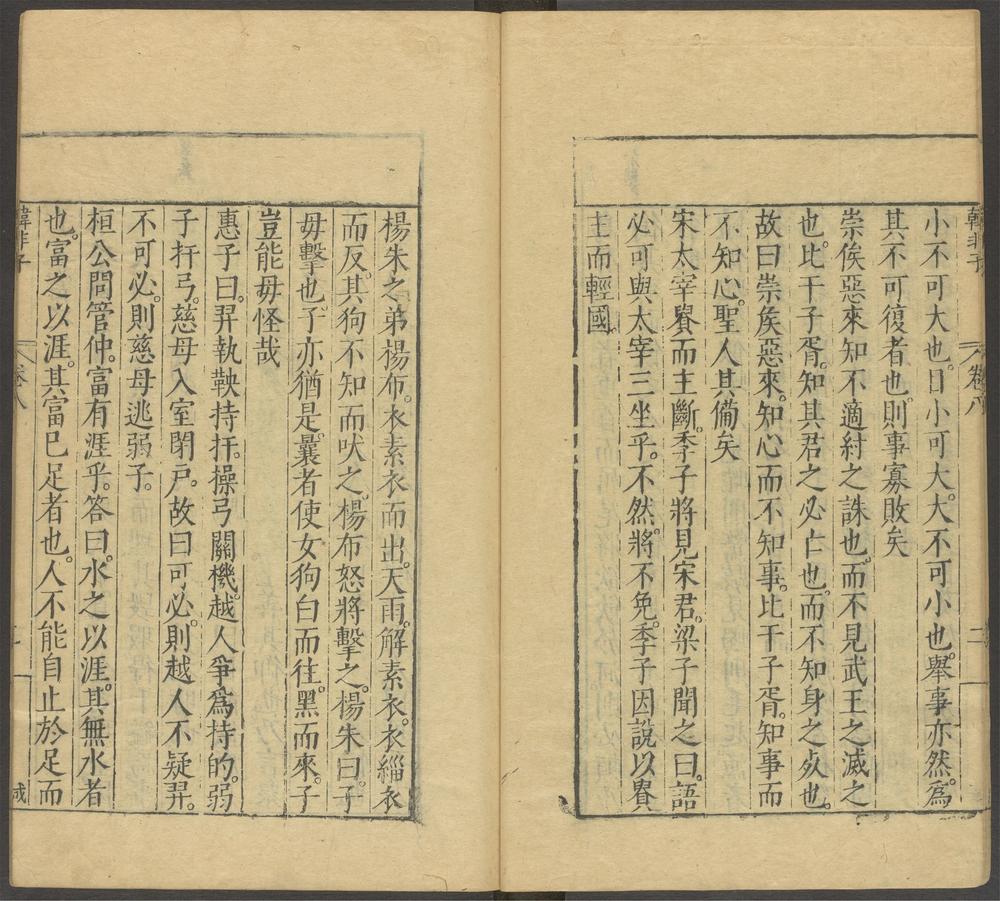 韓非子 卷八 二
小不可大也。目小可大。大不可小也。舉事亦然。爲
其不可復者也。則事寡敗矣
崇侯惡來知不適紂之誅也。而不見武王之滅之
也。比干子胥。知其君之必亡也。而不知身之死也。
故曰崇矦惡來。知心而不知事。比干子胥。知事而
不知心。聖人其備矣
宋太宰貴而主斷。季子將見宋君。梁子聞之曰。語
必可與太宰三坐乎。不然。將不免。季子因說以貴
主而輕國
楊朱之弟楊布。衣素衣而出。天雨。解素衣。衣緇衣
而反。其狗不知而吠之。楊布怒將擊之。楊朱曰。子
毋擊也。子亦猶是。曩者使女狗白而往。黑而來。子
豈能毋怪哉
惠子曰。羿執鞅持扞。操弓關機。越人爭爲持的。弱
子扞弓。慈母入室閉戶。故曰可必。則越人不疑羿。
不可必。則慈母逃弱子。
桓公問管仲。富有涯乎。答曰。水之以涯。其無水者
也。富之以涯。其富已足者也。人不能自止於足而
韓非子 卷八